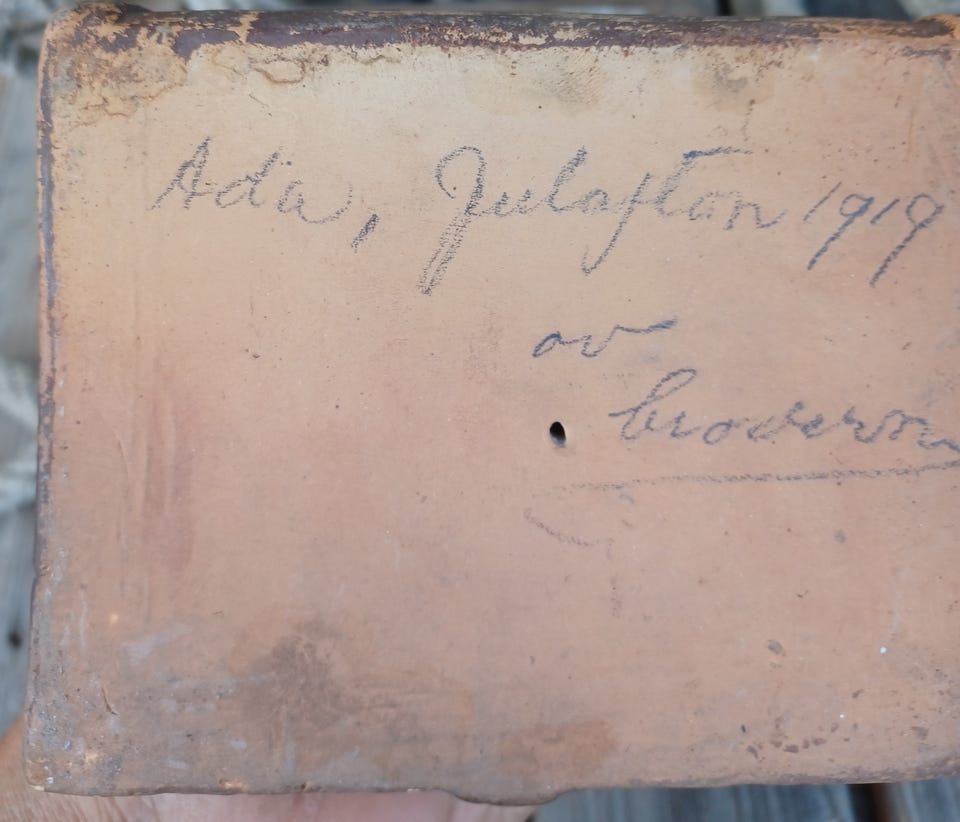 Ada, Julafton 1919
av
brodern